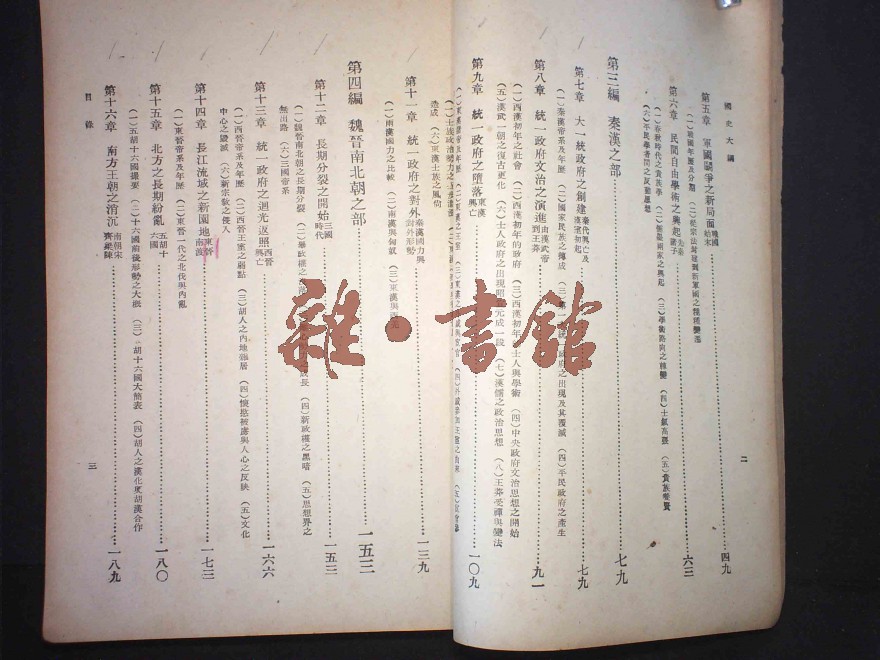 國史大綱
二
第五章 軍國鬪爭之新局面 戰國始末 四九
(一)戰國年歷及分期 (二)從宗法封建到新軍國之種種變遷
第六章 民間自由學術之興起 先秦諸子 六三
(一)春秋時代之貴族學 (二)儒墨兩家之興起 (三)學術路向之轉變 (四)士氣高漲 (五)貴族養賢
(六)平民學者間之反動思想
第三編 秦漢之部 七九
第七章 大一統政府之創建 秦代興亡及漢室初起 七九
(一)秦漢帝系及年歷 (二)國家民族之摶成 (三)第一 政府之出現及其覆滅 (四)平民政府之產生
第八章 統一政府文治之演進 由漢武帝到王莽 九一
(一)西漢初年之社會 (二)西漢初年的政府 (三)西漢初年士人與學術 (四)中央政府文治思想之開始
(五)漢武一朝之復古更化 (六)士人政府之出現昭 元成一段 (七)漢儒之政治思想 (八)王莽受禪與變法
第九章 統一政府之墮落 東漢興亡 一〇九
(一)東漢諸帝及年歷 (二)東漢之王室 (三)東漢之 戚與宦官 (四)外戚參加王室之由來
造成 (六)東漢士族之風尚
第十一章 統一政府之對外 秦漢國力與對外形勢 一三九
(一)兩漢國力之比較 (二)兩漢與匈奴 (三)東漢與西羌
第四編 魏晉南北朝之部 一五三
第十二章 長期分裂之開始 三國時代 一五三
(一)魏晉南北朝之長期分裂 (二)舊政權之 長 (四)新政權之黑暗 (五)思想界之
無出路 (六)三國帝系
第十三章 統一政府之迴光返照 西晉興亡 一六六
(一)西晉帝系及年歷 (二)西晉王室之弱點 (三)胡人之內地雜居 (四)懷愍被虜與人心之反映 (五)文化
中心之毀滅 (六)新宗教之侵入
第十四章 長江流域之新園地 東晉南渡 一七三
(一)東晉帝系及年歷 (二)東晉一代之北伐與內亂
第十五章 北方之長期紛亂 五胡十六國 一八〇
(一)五胡十六國撮要 (二)十六國前後形勢之大概 (三)胡十六國大簡表 (四)胡人之漢化與胡漢合作
第十六章 南方王朝之消沉 南朝宋齊梁陳 一八九
目錄
三
雜·書館